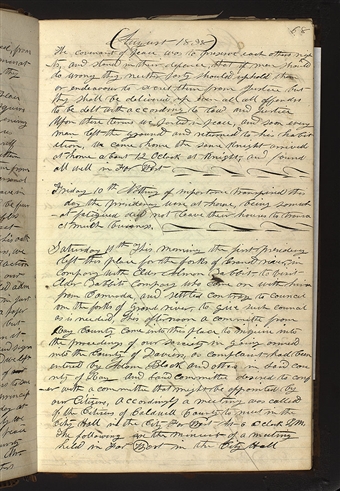 68
(August 1838)
The covenant of peace was to preserve each others righ
ts, and stand in their defence, that if men should
do wrong they neither party should uphold them
or endeavor to screen them from Justice but
they shall be delivered up even all all offenders
to be delt with according to Law and Justice
upon these terms we parted in peace, and soon every
man left the ground and returned to his habit
ation, We came home the same Knight arrived
at home about 12 Oclock at Knight, and found
all well in Far West
Friday 10th Nothing of importance transpired this
day the Presidency were at home, being somewh
at fatigued did not leave their houses to transa
ct much business,
Saturday 11th This morning the first presidency
left this place for the forks of Grand River, in
company with Elder Almon Babbit to visit
Elder Babbits Company who came on with him
from Canada, and settled contrary to council
on the forks of Grand river, to give such council
as is needed, This afternoon a committy from
Ray County came into this place to inquire into
the proceedings of our society in going armed
into the County of Davies, as complaint had been
entered by Adam Black and others in said cou
nty of Ray and said committy desired to conf
with a committee that might be appointed by
our Citizens, accordingly a meeting was called
of the Citizens of Caldwell County to meet in the
City Hall in the City Far West at 6 oclock P.M.
The following are the minuits of a meeting
held in Far West in the City Hall